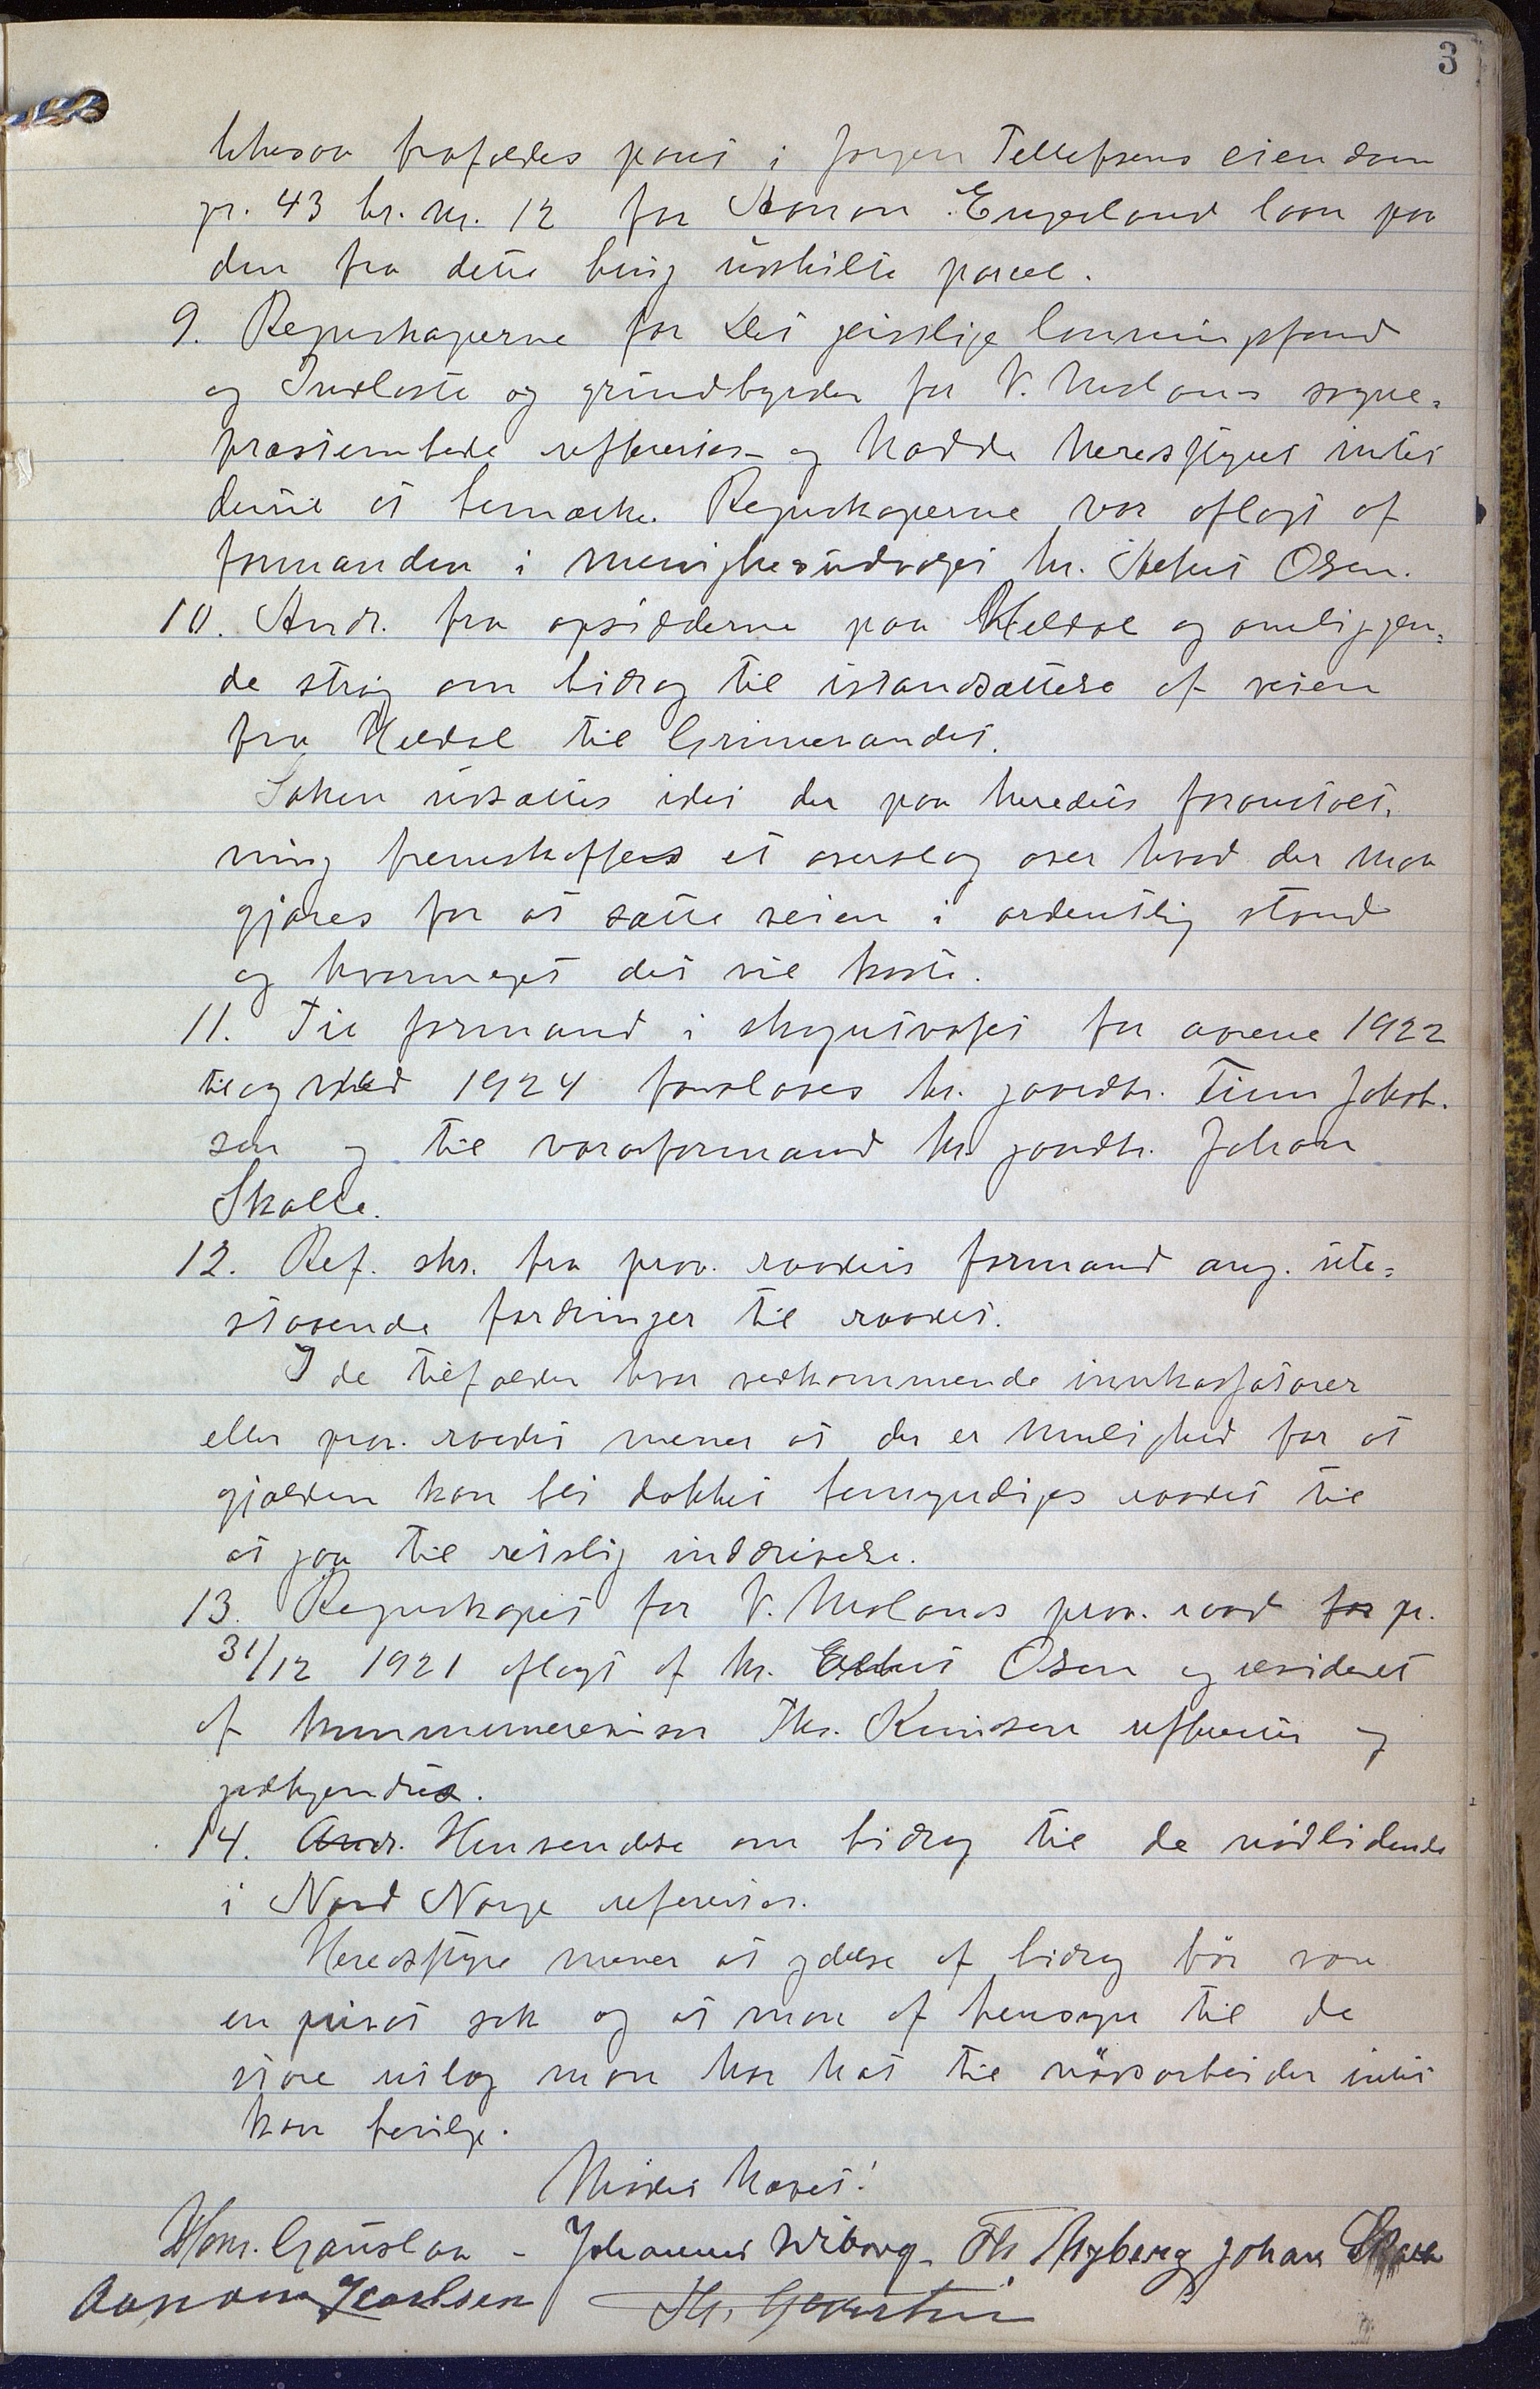 3
likesaa frafaldes pant i Jørgen Tellefsens eiendom
gr. 43 br. nr. 12 for Aanon Engeland laan paa
den fra dette bruk utskilte parcel.
9. Regnskaperne for Det geistlige lønningsfond
og Indløste og grundbyrder for V. Molands sogne-
præsteembede refferertes og hadde heredsstyret intet
dertil at bemærke. Regnskaperne var aflagt af
formanden i menighedsudvalget hr. Osen.
10. Andr. fra opsidderne paa Heldal og omliggen-
de strøg om bidrag til istandsættelse af veien
fra Heldal til Grimevandet.
Saken utsættes idet der paa heredets foranstalt-
ning fremskaffes et overslag over hvad der maa
gjøres for at sætte veien i ordentlig stand
og hvormeget det vil koste.
11. Til formand i skogutvalget for aarene 1922
til og med 1924 foreslaaes hr. gaardbr. Tim Jakob-
sen og til varaformand hr. gaardbr. Johan
Skalle.
12. Ref. skr. fra prov. raadets formand ang. ute-
staaende fordringer til raadet.
I de tilfælder hvor vedkommende innkassatører
eller prov. raadet mener at der er mulighed for at
gjælden kan bli dækket bemyndiges raadet til
at gaa til retslig inddrivelse.
13. Regnskapet for V. Molands prov. raad for pr.
31/12 1921 aflagt af hr. Osen og revideret
af kommunerevisor Ths. Knudsen refferertes og
godkjendtes.
14. Andr. Henvendelse om bidrag til de nødlidende
i Nord Norge refereertes.
Heredsstyre mener at ydelse af bidrag bør være
en privat sak og at man af hensyn til de
store utlæg man har hat til nødsarbeider intet
kan bevilge.
Mødet hævet!
Hans. Gauslaa - Johannes Wiborg - Th. Nyberg Johan Skalle
Aanon Jacobsen Th.